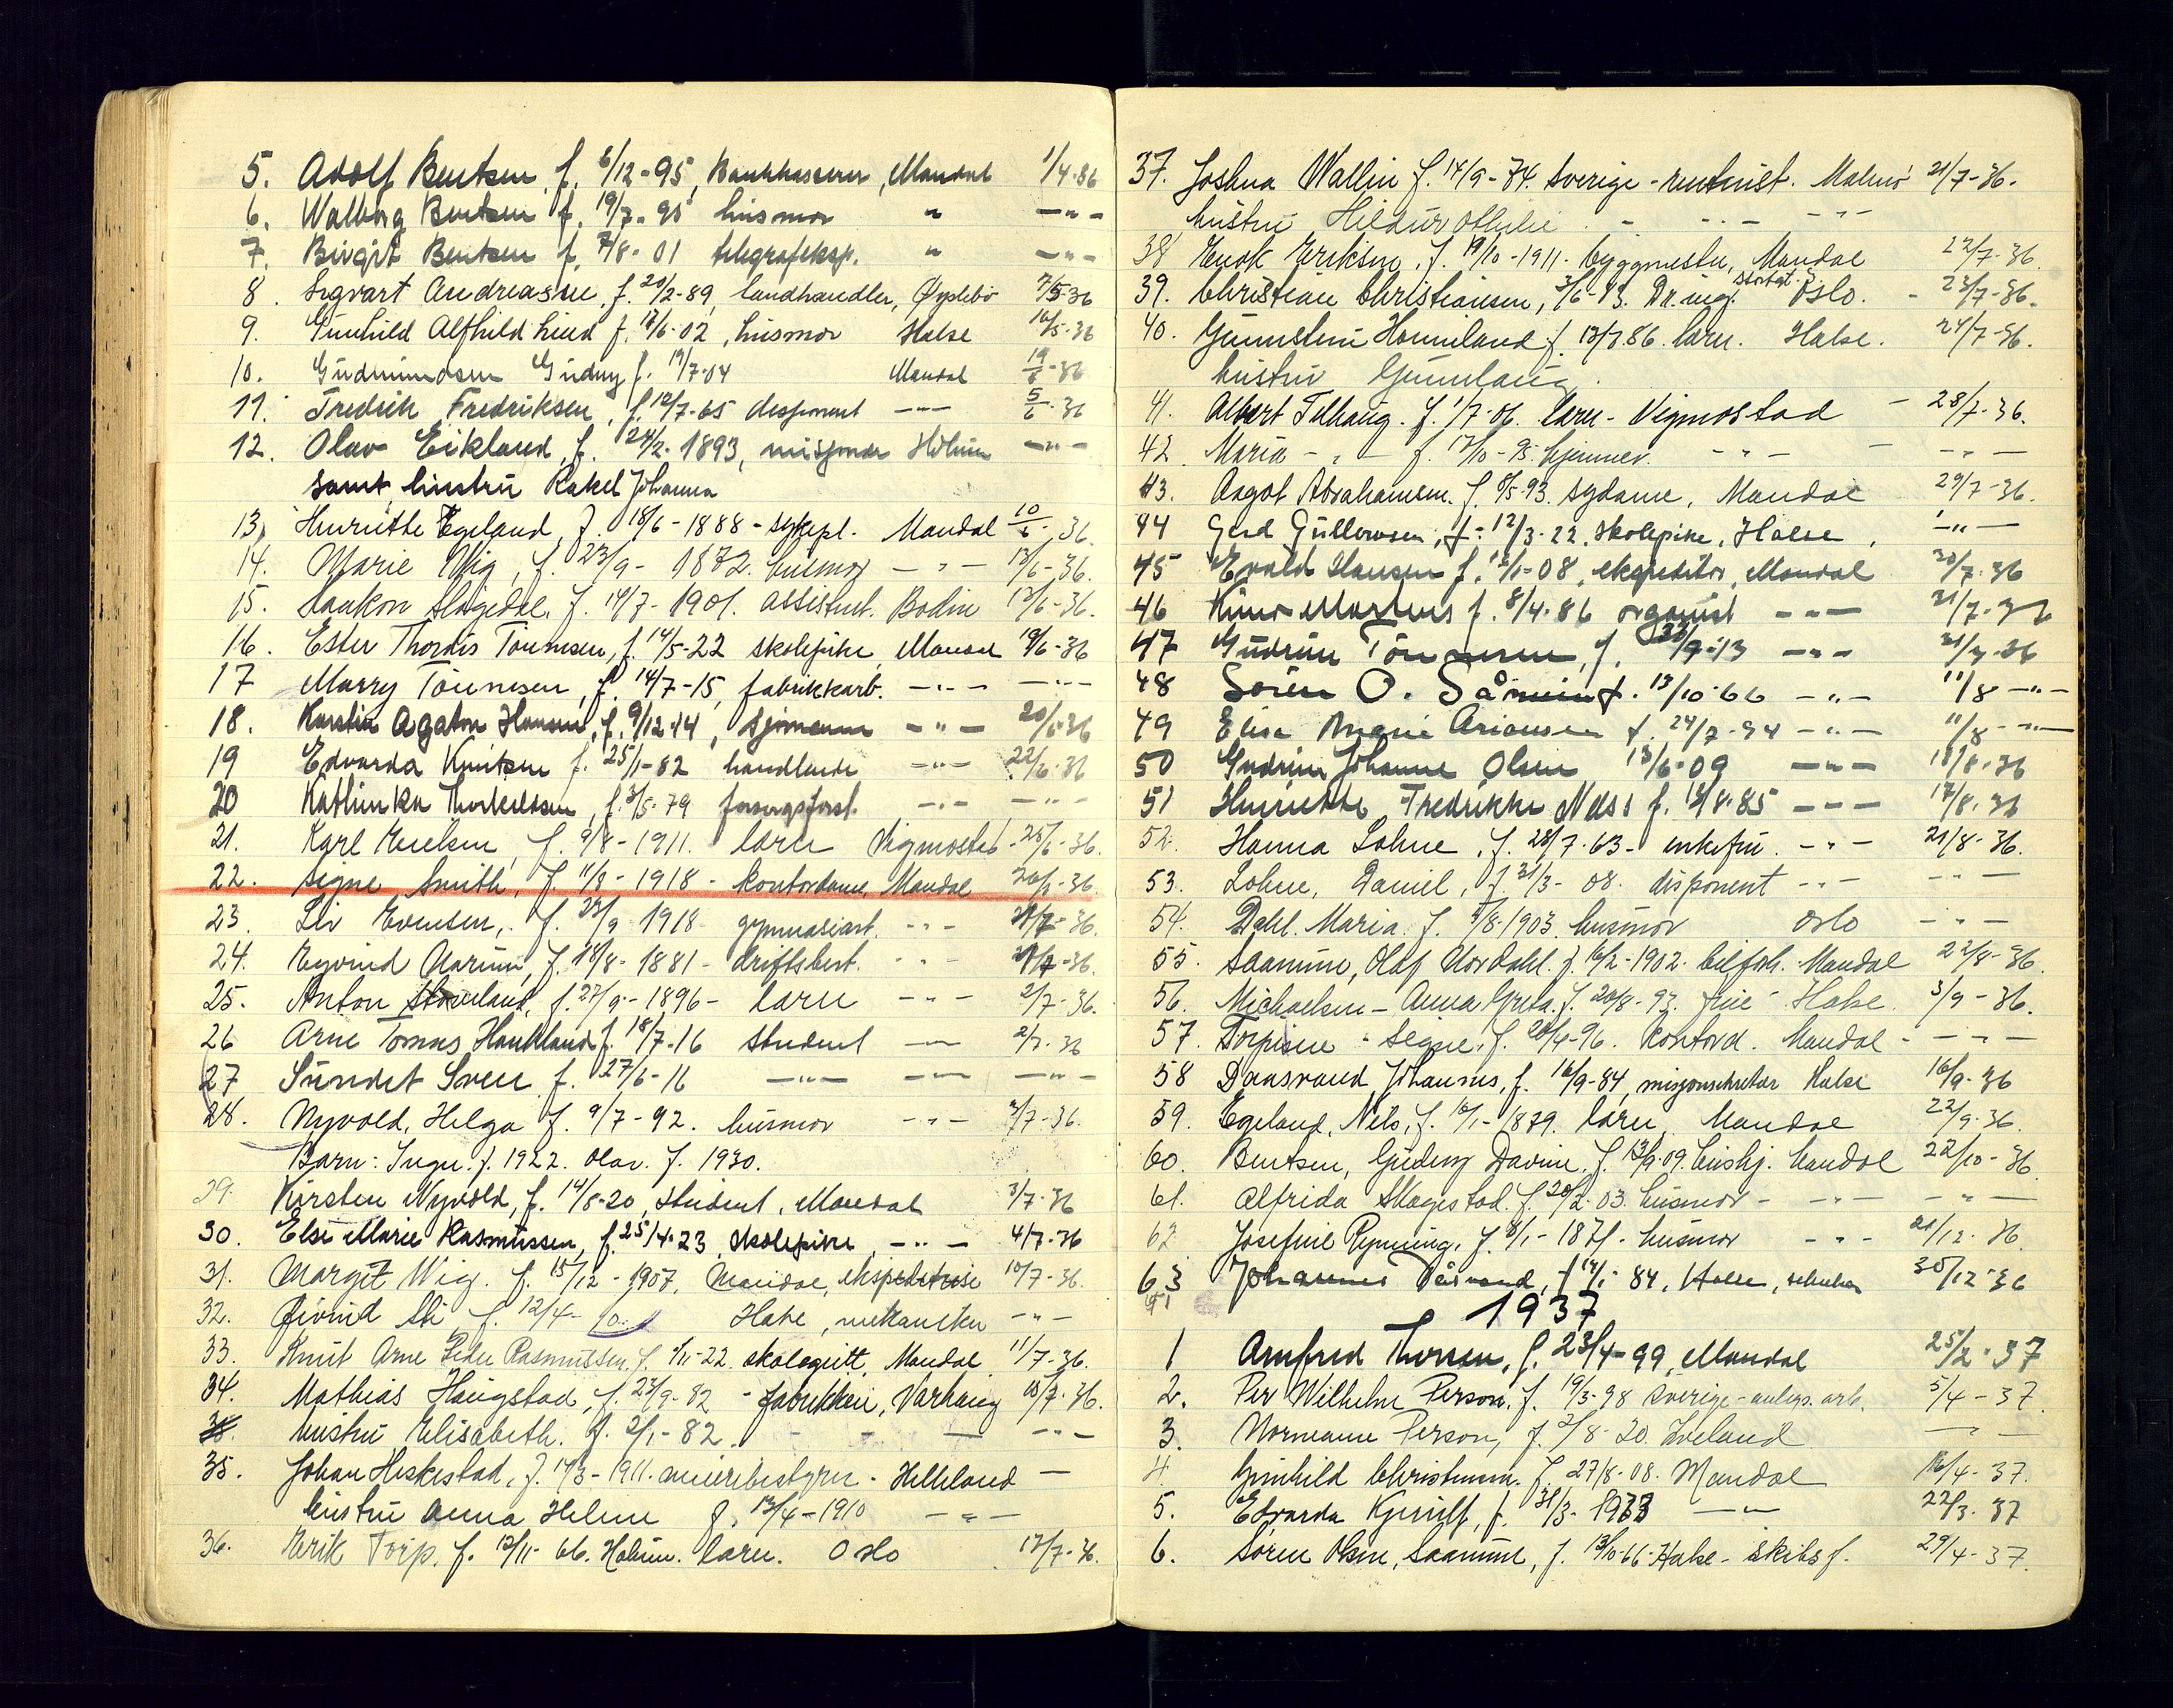 5. Adolf Bentsen, f. 6/12-95, Bankkasserer, Mandal 1/4-36
6. Walborg Bentsen f. 19/7-95 husmor " —"—
7. Birgit Bentsen f. 7/8-01 telegrafeksp. " —"—
8. Sigvart Andreassen, f. 20/2-89, landhandler, Øyslebö 7/5-36
9. Gunhild Alfhild Lund f. 17/6-02, husmor Halse 16/5-36
10. Gudmundsen Gudny f. 19/7-04 Mandal 19/5-36
11. Fredrik Fredriksen, f. 12/7-65 disponent —"— 5/6-36
12. Olav Eikland, f. 24/2-1893, misjonær Holum —"—
samt hustru Rakel Johanna
13. Henriette Egeland, f. 18/6-1888 - sykepl. Mandal 10/6 36.
14. Marie Wig, f. 23/9-1872. husmor —"— 13/6-36.
15. Haakon Slogedal. f. 14/7-1901. assistent. Bodin 12/6-36.
16. Ester Thordis Tönnesen, f. 14/5-22 skolepike Mandal 19/6-36
17 Marry Tönnesen, f. 14/7-15, fabrikkarb. —"— —"—
18. Karstin Agaton Hansen, f. 9/12-14, sjömann —"— 20/6-36
19 Edvarda Knutsen f. 25/1-82 handlende —"— 22/6-36
20 Kathinka Thorkildsen, f. 3/5-79 forsorgsforst. —"— —"—
21. Karl Nielsen, f. 9/8-1911. lærer Vigmostad - 25/6-36.
22. Signe Smith, f. 11/8-1918 - kontordame, Mandal 26/6-36.
23. Liv Evensen, f. 23/9 1918 gymnasiast. —"— 1/7-36.
24. Eyvind Aarum, f. 18/8-1881 - driftsbest. —"— 1/7-36.
25. Anton Skoveland, f. 27/9-1896 - lærer —"— 2/7-36.
26 Arne Tomas Haukland f. 18/7-16 student —"— 2/7-36
27 Sundet Sven f. 27/6-16 —"— —"— —"—
28. Nyvold, Helga f. 9/7-92. husmor —"— 3/7-36.
Barn: Inger. f. 1922. Olav. f. 1930.
29. Kirsten Nyvold, f. 14/8-20, student, Mandal 3/7-36
30. Else Marie Rasmussen, f. 25/4-23 skolepike, —"— 4/7-36
31. Margit Wig. f. 15/12-1907. Mandal, ekspeditrise 10/7-36.
32. Øivind Ski f. 12/4-10. Halse, mekaniker —"—
33. Knut Arne Peder Rasmussen, f. 1/11-22. skolegutt, Mandal 11/7-36.
34. Mathias Haugstad, f. 23/9-82 - fabrikkeier, Varhaug 15/7-36.
35. hustru Elisabeth. f. 2/1-82. - - — —"—
35. Johan Heskestad, f. 17/3-1911. meieribestyrer - Helleland —
hustru Anna Helene f. 13/4-1910 —"—
36. Erik Torp. f. 12/11-66. Holum. lærer. Oslo 17/7-36.
37. Joshua Wallin f. 14/9-74. Sverige - rentnist. Malmö 21/7-36.
hustru Hildur Othilie - —"— —"—
38 Enok Eriksen, f. 19/10-1911. byggmester, Mandal 22/7-36.
39. Christian Christiansen, 3/6-13. Dr. ing. Oslo. - 23/7-36.
40. Gunnstein Homeland f. 13/7 86. lærer. Halse. 24/7-36.
hustru Gunnlaug.
41. Albert Telhaug. f. 1/7-06. lærer - Vigmostad — 28/7-36.
42. Maria —"— f. 17/10-93. hjemmev. —"— — —"—
43. Aagot Abrahamsen. f. 8/5-93. sydame, Mandal 29/7-36.
44 Gerd Gullovsen, f. 12/3-22, skolepike, Halse, —"—
45 Evald Hansen f. 12/1-08, ekspeditör, Mandal 30/7-36
46 Martens f. 8/4-86 organist —"— 31/7-36
47 Gudrun Tönnesen, f. 23/9-13 —"— 31/7-36
48 Sören O. Såmund f. 13/10-66 —"— 11/8 —"—
49 Elise Marie Ariansen f. 24/7-94 —"— 11/8 - —"—
50 Gudrun Johanne Olsen 13/6-09 —"— 13/8-36
51 Henriette Fredrikke Næss f. 12/8-85 —"— 17/8-36
52. Hanna Lohne, f. 28/7-63 - enkefru. —"— 21/8-36.
53. Lohne, Daniel, f. 31/3-08. disponent —"— —"—
54. Dahl. Maria. f. 7/8-1903. husmor Oslo —"—
55. Saamme, Olaf Nordahl. f. 16/2-1902. bilfork. Mandal 22/8-36.
56. Michaelsen - Anna Greta. f. 20/8-93. frue - Halse. 3/9-36.
57. Torpisene - Signe, f. 20/4-96. kontord. Mandal - —"—
58 Daasvand Johannes, f. 16/9-84, misjonsekretær Halse 16/9-36
59. Egeland, Nils, f. 10/1-1879. lærer, Mandal 22/9-36.
60. Bentsen, Gudny Davine. f. 13/9-09. hushj. Mandal 22/10-36
61. Alfrida Skagestad. f. 20/2-03. husmor - —"— —"—
62 Josefine Rynning, f. 8/1-1871. husmor —"— 21/12-36.
63 Johannes Dåsvand, f. 84, Halse, 30/12-36
1937
1 Arnfred Thorsen, f. 23/4-99, Mandal 25/2-37
2. Per Wilhelm Person, f. 19/3-98 Sverige - anlegs. arb. 5/4-37.
3. Normanne Person, f. 2/8-20. Iveland —"—
4 Gunhild Christensen. f. 27/8-08. Mandal 16/4-37.
5. Edvarda Kjerulf, f. 31/3-1933 —"— 22/3-37
6. Sören Olsen, Saamme, f. 13/10-66 - Halse - skibsf. 29/4-37.